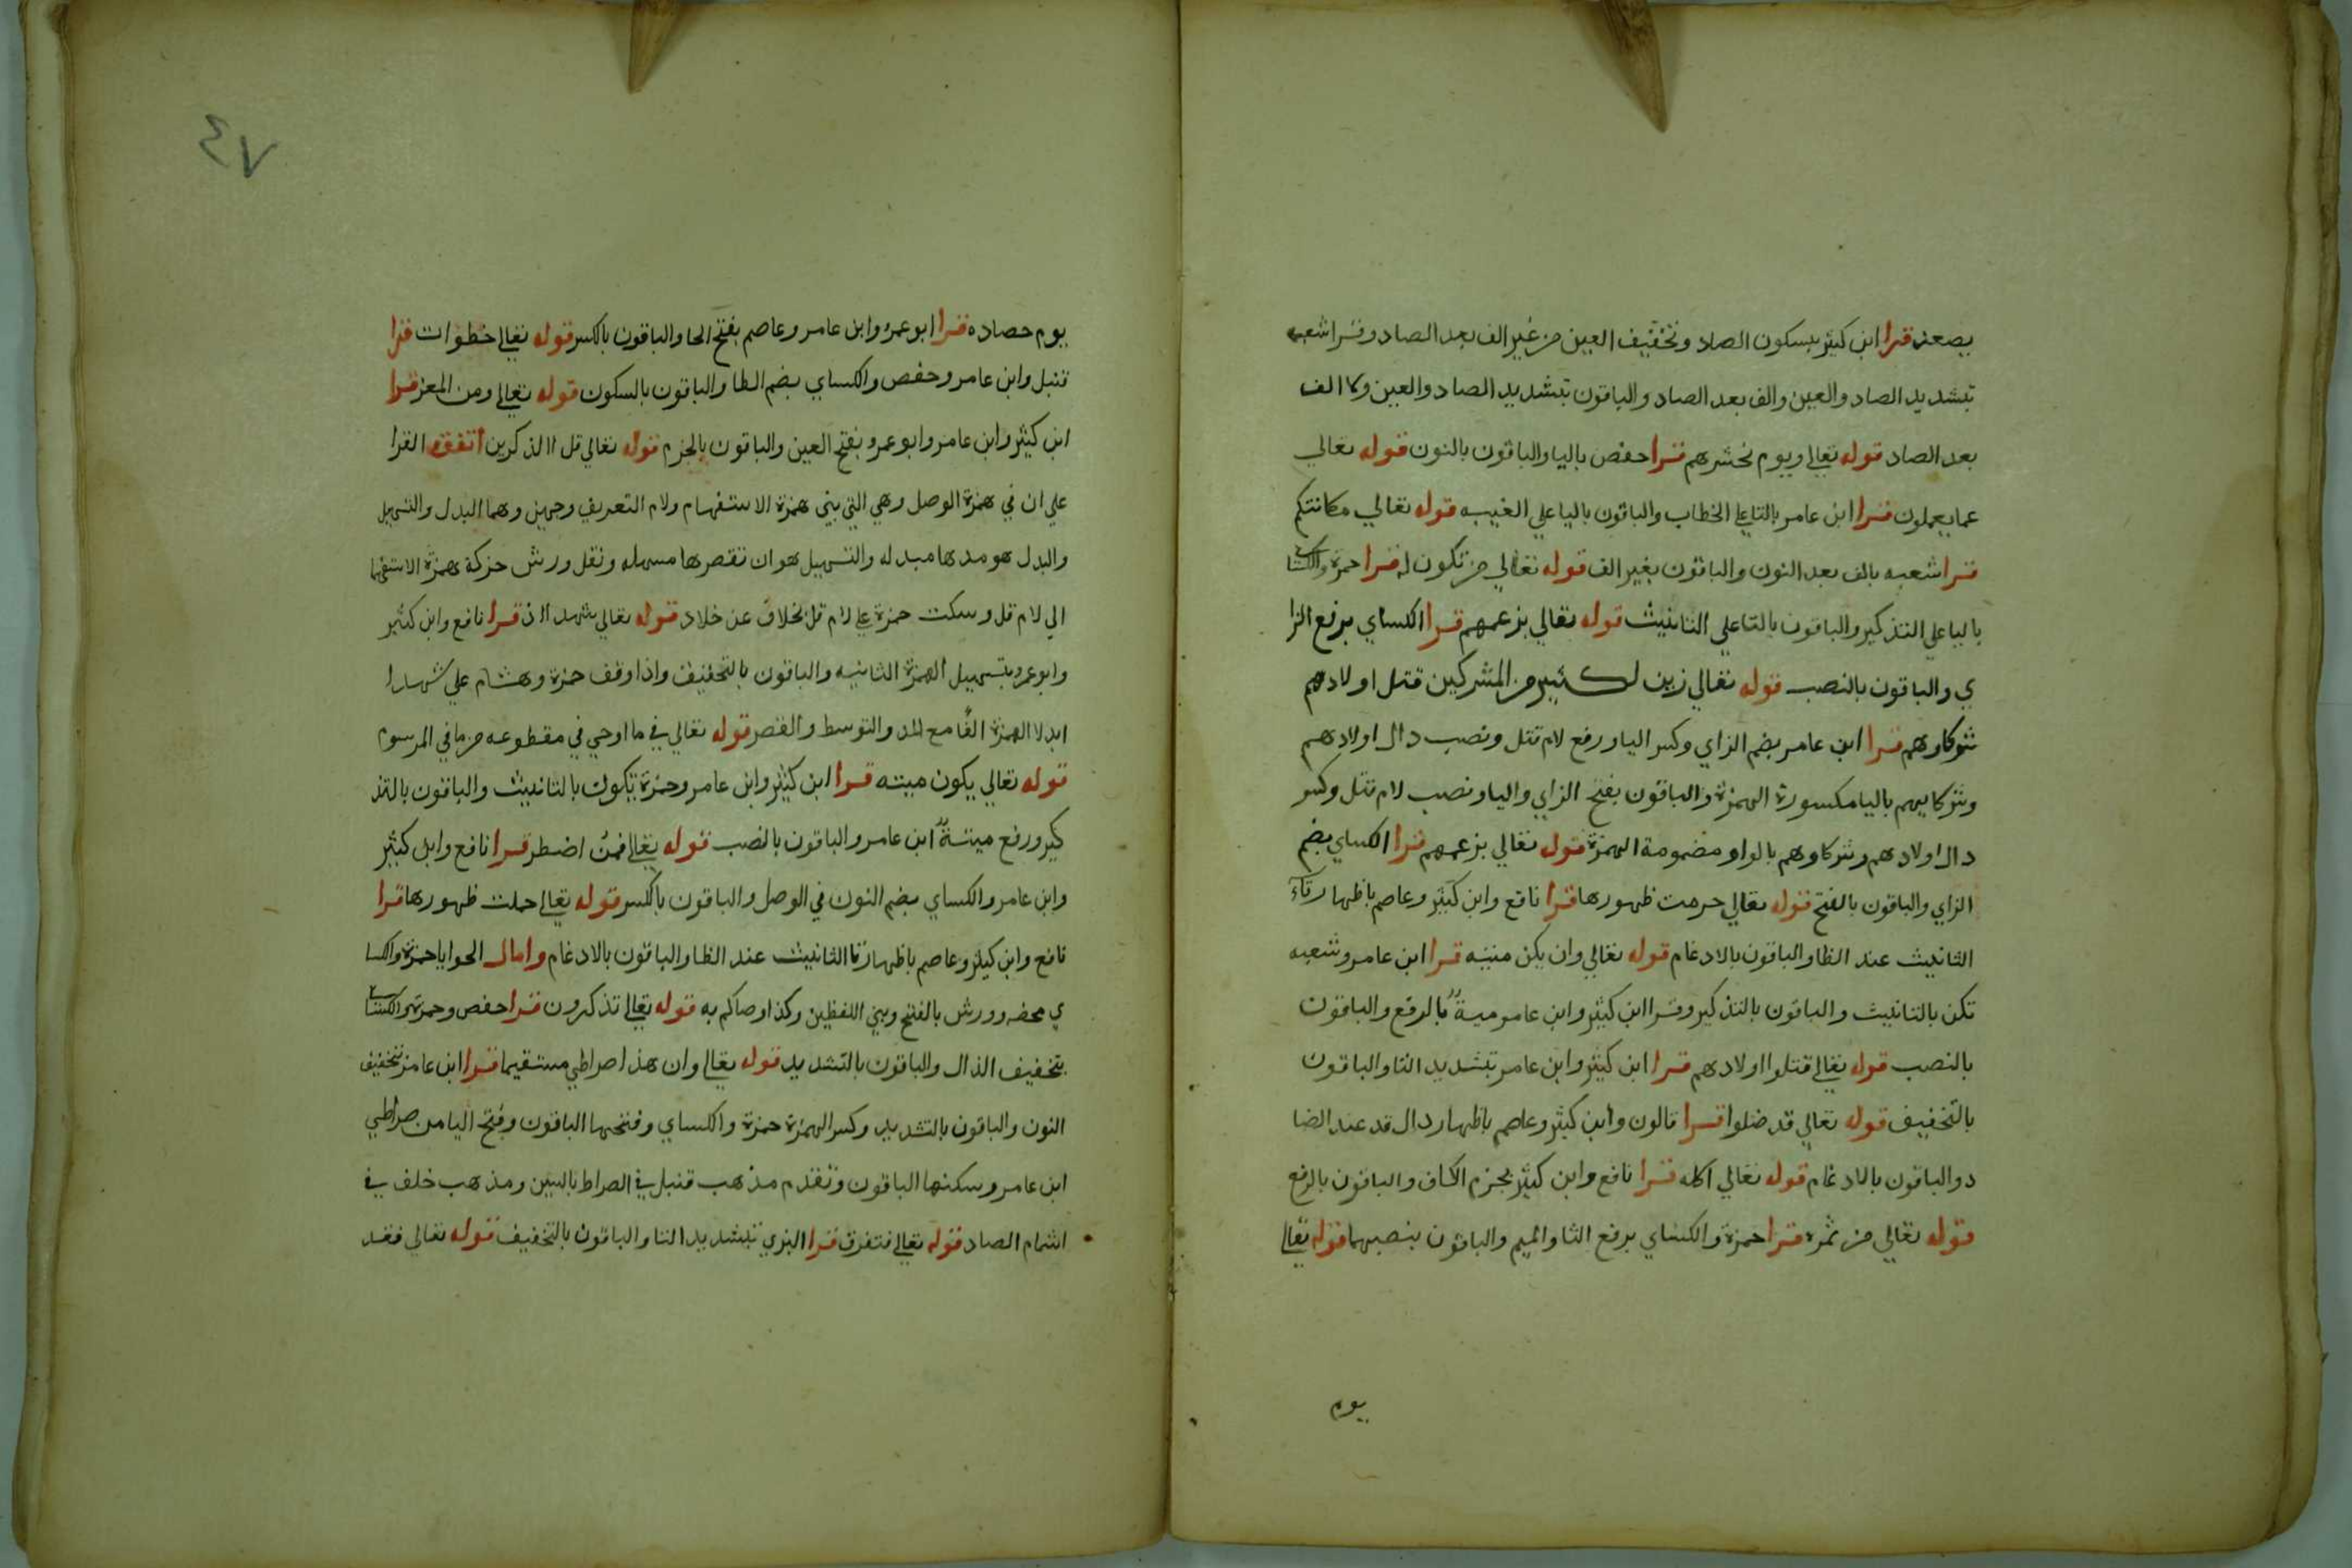 يصعد قرا ابن كثير بسكون الصاد وتخفيف العين من غير الف بعد الصاد وقرا شعبه
بتشديد الصاد والعين والف بعد الصاد والباقون بتشديد الصاد والعين ولا الف
بعد الصاد قوله تعالى ويوم نحشرهم قرا حفص باليا والباقون بالنون قوله تعالي
عما يعملون قرا ابن عامر بالتا علي الخطاب والباقون باليا علي الغيبه قوله تعالي مكانتكم
قرا شعبه بالف بعد النون والباقون بغير الف قوله تعالي من تكون له قرا حمزة والكسا
باليا علي التذكير والباقون بالتا علي التانيث قوله تعالي بزعمهم قرا الكساي برفع الزا
ي والباقون بالنصب قوله تعالي زين لكثير من المشركين قتل اولادهم
شركاوهم قرا ابن عامر بضم الزاي وكسر اليا ورفع لام قتل ونصب دال اولادهم
وشركايهم باليا مكسورة الهمزة والباقون بفتح الزاي واليا ونصب لام قتل وكسر
دال اولادهم وشركاوهم بالواو مضمومة الهمزة قوله تعالي بزعمهم قرا الكساي بضم
الزاي والباقون بالفتح قوله تعالي حرمت ظهورها قرا نافع وابن كثير وعاصم باظهار تاء
التانيث عند الظا والباقون بالادغام قوله تعالي وان يكن ميتيه قرا ابن عامر وشعبه
تكن بالتانيث والباقون بالتذكير وقرا ابن كثير وابن عامر ميةٌ بالرفع والباقون
بالنصب قوله تعالى قتلوا اولادهم قرا ابن كثير وابن عامر بتشديد التا والباقون
بالتخفيف قوله تعالي قد ضلوا قرا قالون وابن كثير وعاصم باظهار دال قد عند الضا
د والباقون بالادغام قوله تعالي اكله قرا نافع وابن كثير بجزم الكاف والباقون بالرفع
قوله تعالي من ثمره قرا حمزة والكساي برفع الثا والميم والباقون بنصبهما قوله تعالى
يوم
٤٧
يوم حصاده قرا ابو عمرو وابن عامر وعاصم بفتح الحا والباقون بالكسر قوله تعالى خطوات قرا
قنبل وابن عامر وحفص والكساي بضم الطا والباقون بالسكون قوله تعالى ومن المعز قرا
ابن كثير وابن عامر وابو عمرو بفتح العين والباقون بالجزم قوله تعالي قل االذكرين اتفقه القرا
علي ان في همزة الوصل وهي التي بين همزة الاستفهام ولام التعريف وجهين وهما البدل والتسهيل
والبدل هو مدها مبدله والتسهيل هو ان تقصرها مسهله ونقل ورش حركة همزة الاستفها
الي لام قل وسكت حمزة علي لام قل بخلاف عن خلاد قوله تعالي شهدا اذ قرا نافع وابن كثير
وابو عمرو بتسهيل الهمزة الثانيه والباقون بالتخفيف واذا وقف حمزة وهشام علي شهدا
ابدلا الهمزة الفًا مع المد والتوسط والقصر قوله تعالي في ما اوحي في مقطوعه من ما في المرسوم
قوله تعالي يكون ميته قرا ابن كثير وابن عامر وحمزة تكون بالتانيث والباقون بالتذ
كير ورفع ميتةٌ ابن عامر والباقون بالنصب قوله تعالى فمن اضطر قرا نافع وابن كثير
وابن عامر والكساي بضم النون في الوصل والباقون بالكسر قوله تعالى حملت ظهورها قرا
نافع وابن كثير وعاصم باظهار تا التانيث عند الظا والباقون بالادغام وامال الحوايا حمزة والكسا
ي محضه وورش بالفتح وبين اللفظين وكذا وصاكم به قوله تعالى تذكرون قرا حفص وحمزة والكسا
بتخفيف الذال والباقون بالتشديد قوله تعالى وان هذا صراطي مستقيما قرا ابن عامر بتخفيف
النون والباقون بالتشديد وكسر الهمزة حمزة والكساي وفتحها الباقون وفتح اليا من صراطي
ابن عامر وسكنها الباقون وتقدم مذهب قنبل في الصراط بالسين ومذهب خلف في
اشمام الصاد قوله تعالى فتفرق قرا البزي بتشديد التا والباقون بالتخفيف قوله تعالي فقد